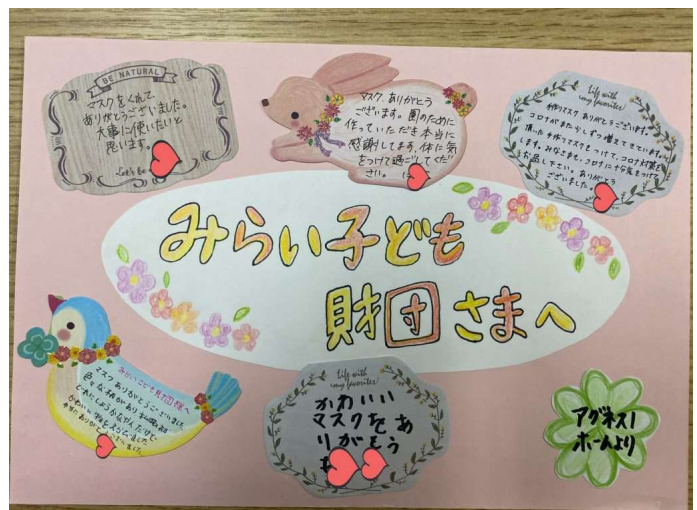 BE NATURAL
マスクをくれて
ありがとうございました。
大事に使いたいと
思います。
Let's be
マスク、ありがとう
ございます。園のために
作っていただき本当に
感謝してます。体に気
をつけて過ごしてくだ
さい。
Life with
my favorites
手作りマスクありがとうございます。
コロナがまた少しずつ増えてきています。
頂いた手作りマスクをつけて、コロナ対策を
します。みなさまも、コロナに十分気をつけて
お過し下さい。ありがとう
ございました
みらい子ども
財団さまへ
みらいこども財団様へ
マスクありがとうございます
色々な柄があり
どれにしようかなやんだけど
かわいい柄をえらびました
本当にありがとうございました
Life with
my favorites
かわいい
マスクをあ
りがとう
アグネス1
ホームより